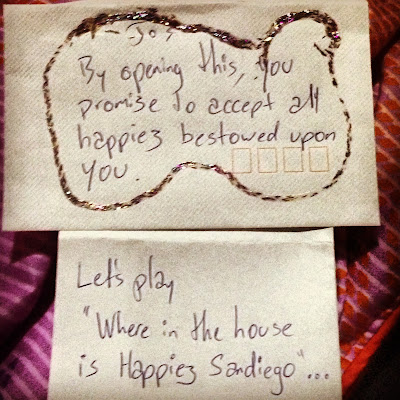 By opening this, you
promise to accept all
happiez bestowed upon
you.
Let's play
"Where in the house
is Happiez Sandiego"...